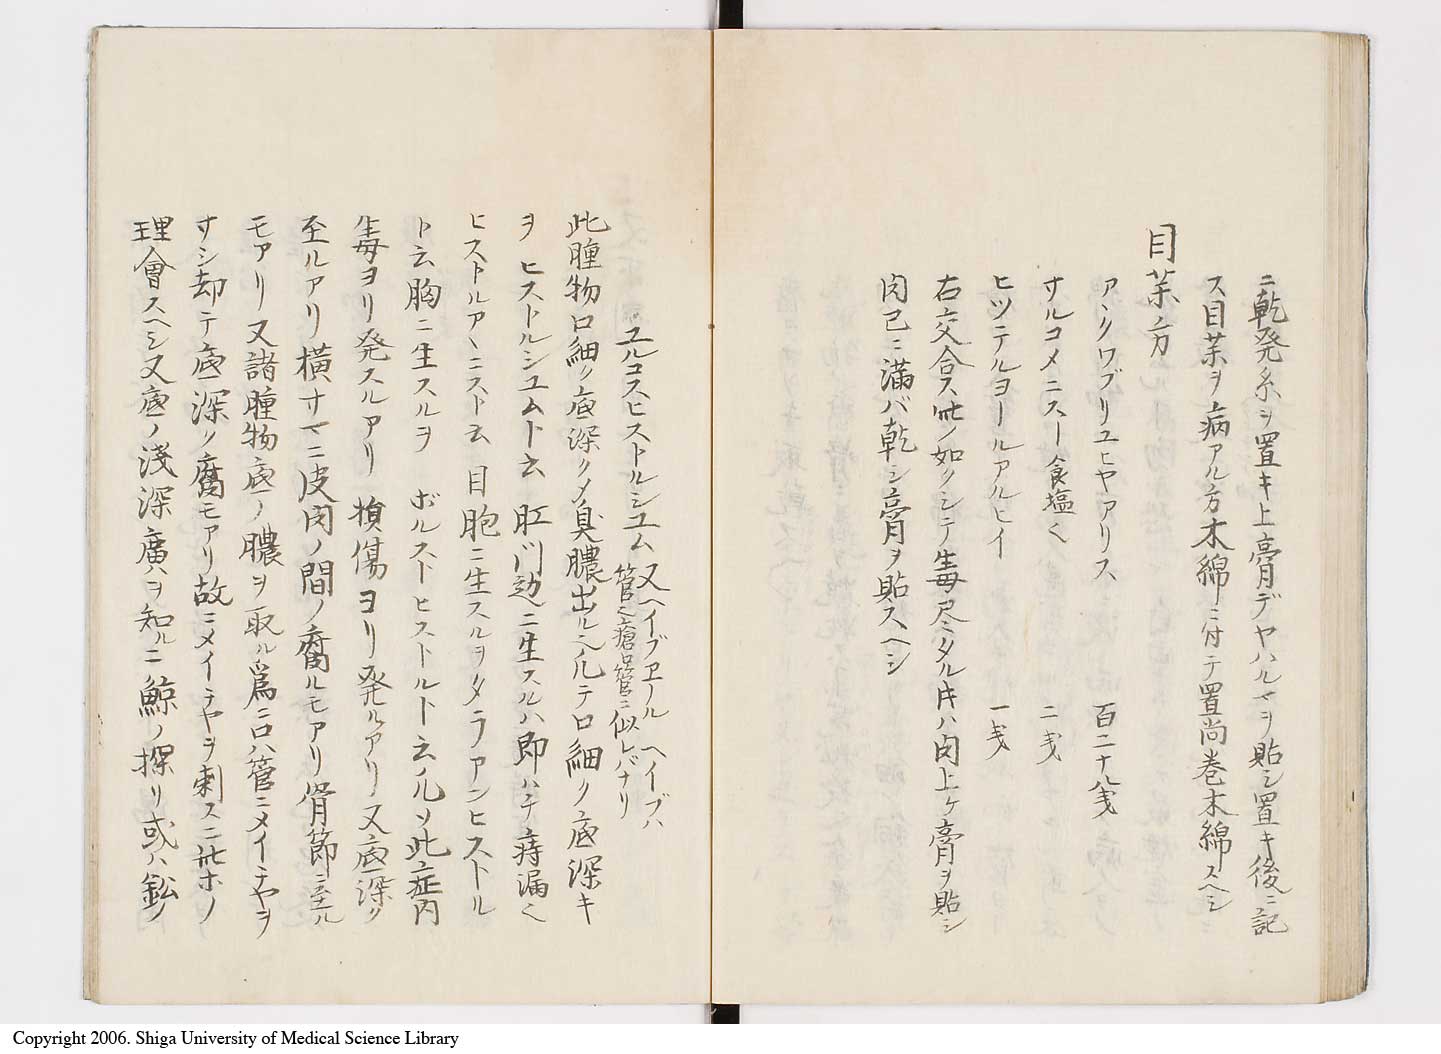 ニ乾発糸ヲ置キ上膏デヤハルマヲ貼シ置キ後ニ記
ス目薬ヲ病アル方木綿ニ付テ置尚巻木綿スヘシ
目薬方
アクワブリユヒヤアリス 百二十八戔
サルコメニスー食塩也 二戔
ヒツテルヨールアルヒイ 一戔
右六交合ス此ノ如クシテ生毒尽タル時ハ肉上ケ膏ヲ貼シ
肉已ニ満バ乾シ膏ヲ貼スヘシ
ユルコスヒストルシユム 又ヘイブヱール ヘイブハ
管也瘡口管ニ似レバナリ
此腫物口細ク底深クメ臭膿出ル凡テ口細ク底深キ
ヲ ヒストルシユムト云 肛門辺ニ生スルハ即ハチ痔漏也
ヒストルアーニスト云 目胞ニ生スルヲタラアンヒストル
ト云胸ニ生スルヲ ボルストヒストルト云凡ソ此症内
生毒ヨリ発スルアリ 損傷ヨリ発ルアリ又底深ク
至ルアリ横サマニ皮肉ノ間ノ腐ルモアリ骨節ニ至ル
モアリ又諸腫物底ノ膿ヲ取ル為ニ口ハ管ニメイテヤヲ
サシ却テ底深ク腐モアリ故ニメイテヤヲ刺スニ此ホノ
理會スヘシ又底ノ浅深廣ヲ知ルニ鯨ノ探リ或ハ鈆ノ
Copyright 2006. Shiga University of Medical Science Library